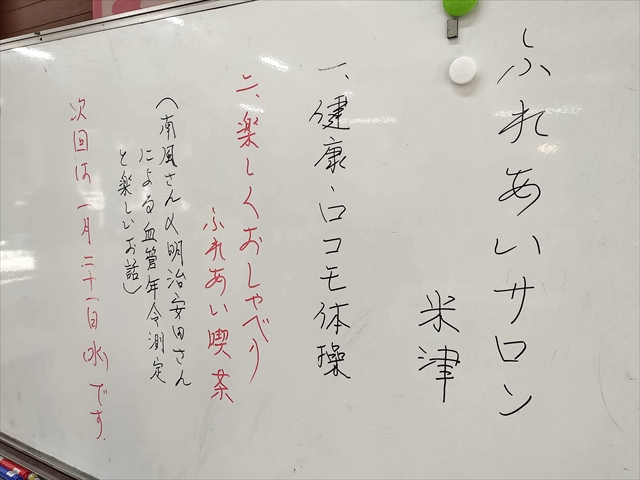 ふれあいサロン
米津
一、健康・ロコモ体操
二、楽しくおしゃべり
ふれあい喫茶
(南風さん〆明治安田さん
による血管年令測定
と楽しいお話)
次回は一月二十一日(水)です。